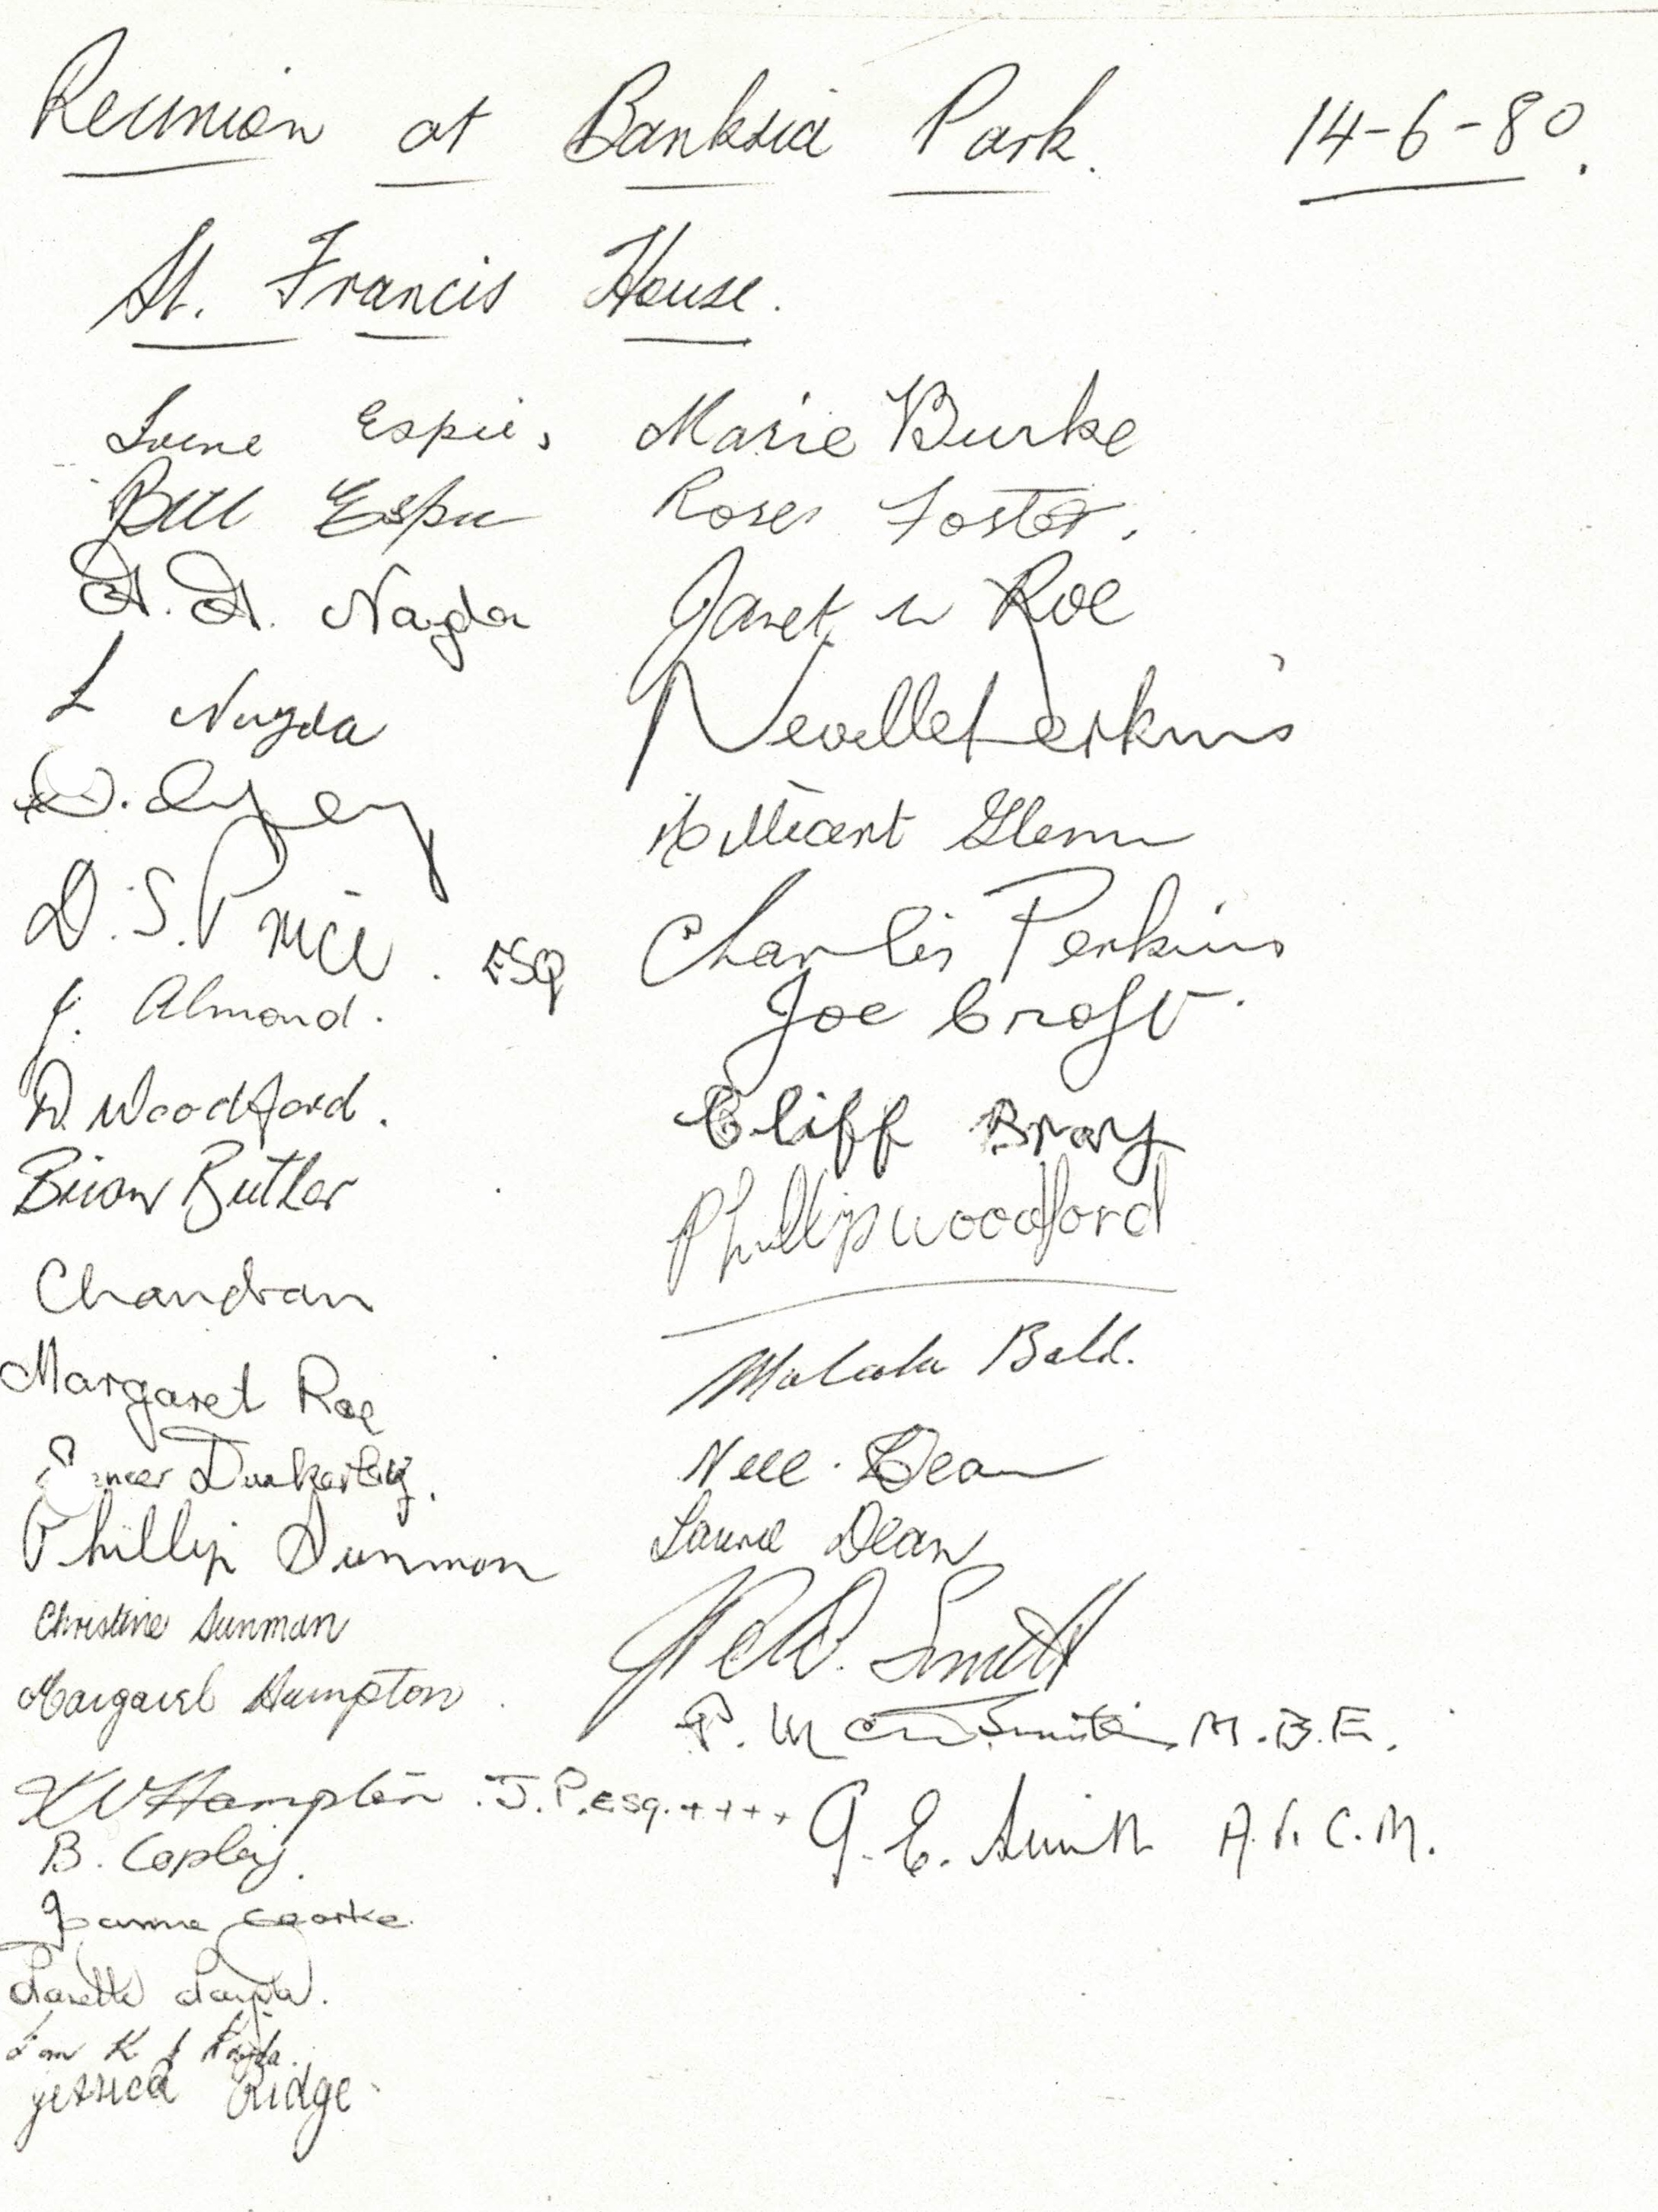 Reunion at Banksia Park. 14-6-80.
St. Francis House.
Espie,
Bill Espie
A. A. Nayda
L Nayda
D. S. Price. ESQ
J. Almond.
D. Woodford.
Brian Butler
Chandran
Margaret Roe
Dunkerley.
Phillip Sunman
Christine Sunman
Margaret Hampton
K V Hampton. J.P. Esq. ++++
B. Copley.
Joanne
Nayda
Jessica Ridge
Marie Burke
Rose Foster.
Janet Roe
Neville Perkins
Millicent Glenn
Charlie Perkins
Joe Croft.
Cliff Bray
Phillip Woodford
Malcolm Bald.
Nell Dean
Laurie Dean
Smith
P. McD Smith M.B.E.
G. E. Smith